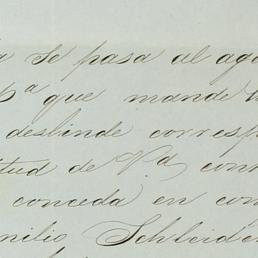 se pasa al
que mande
deslinde corresp
tud de Vd con
conceda en con
milio Schleiden